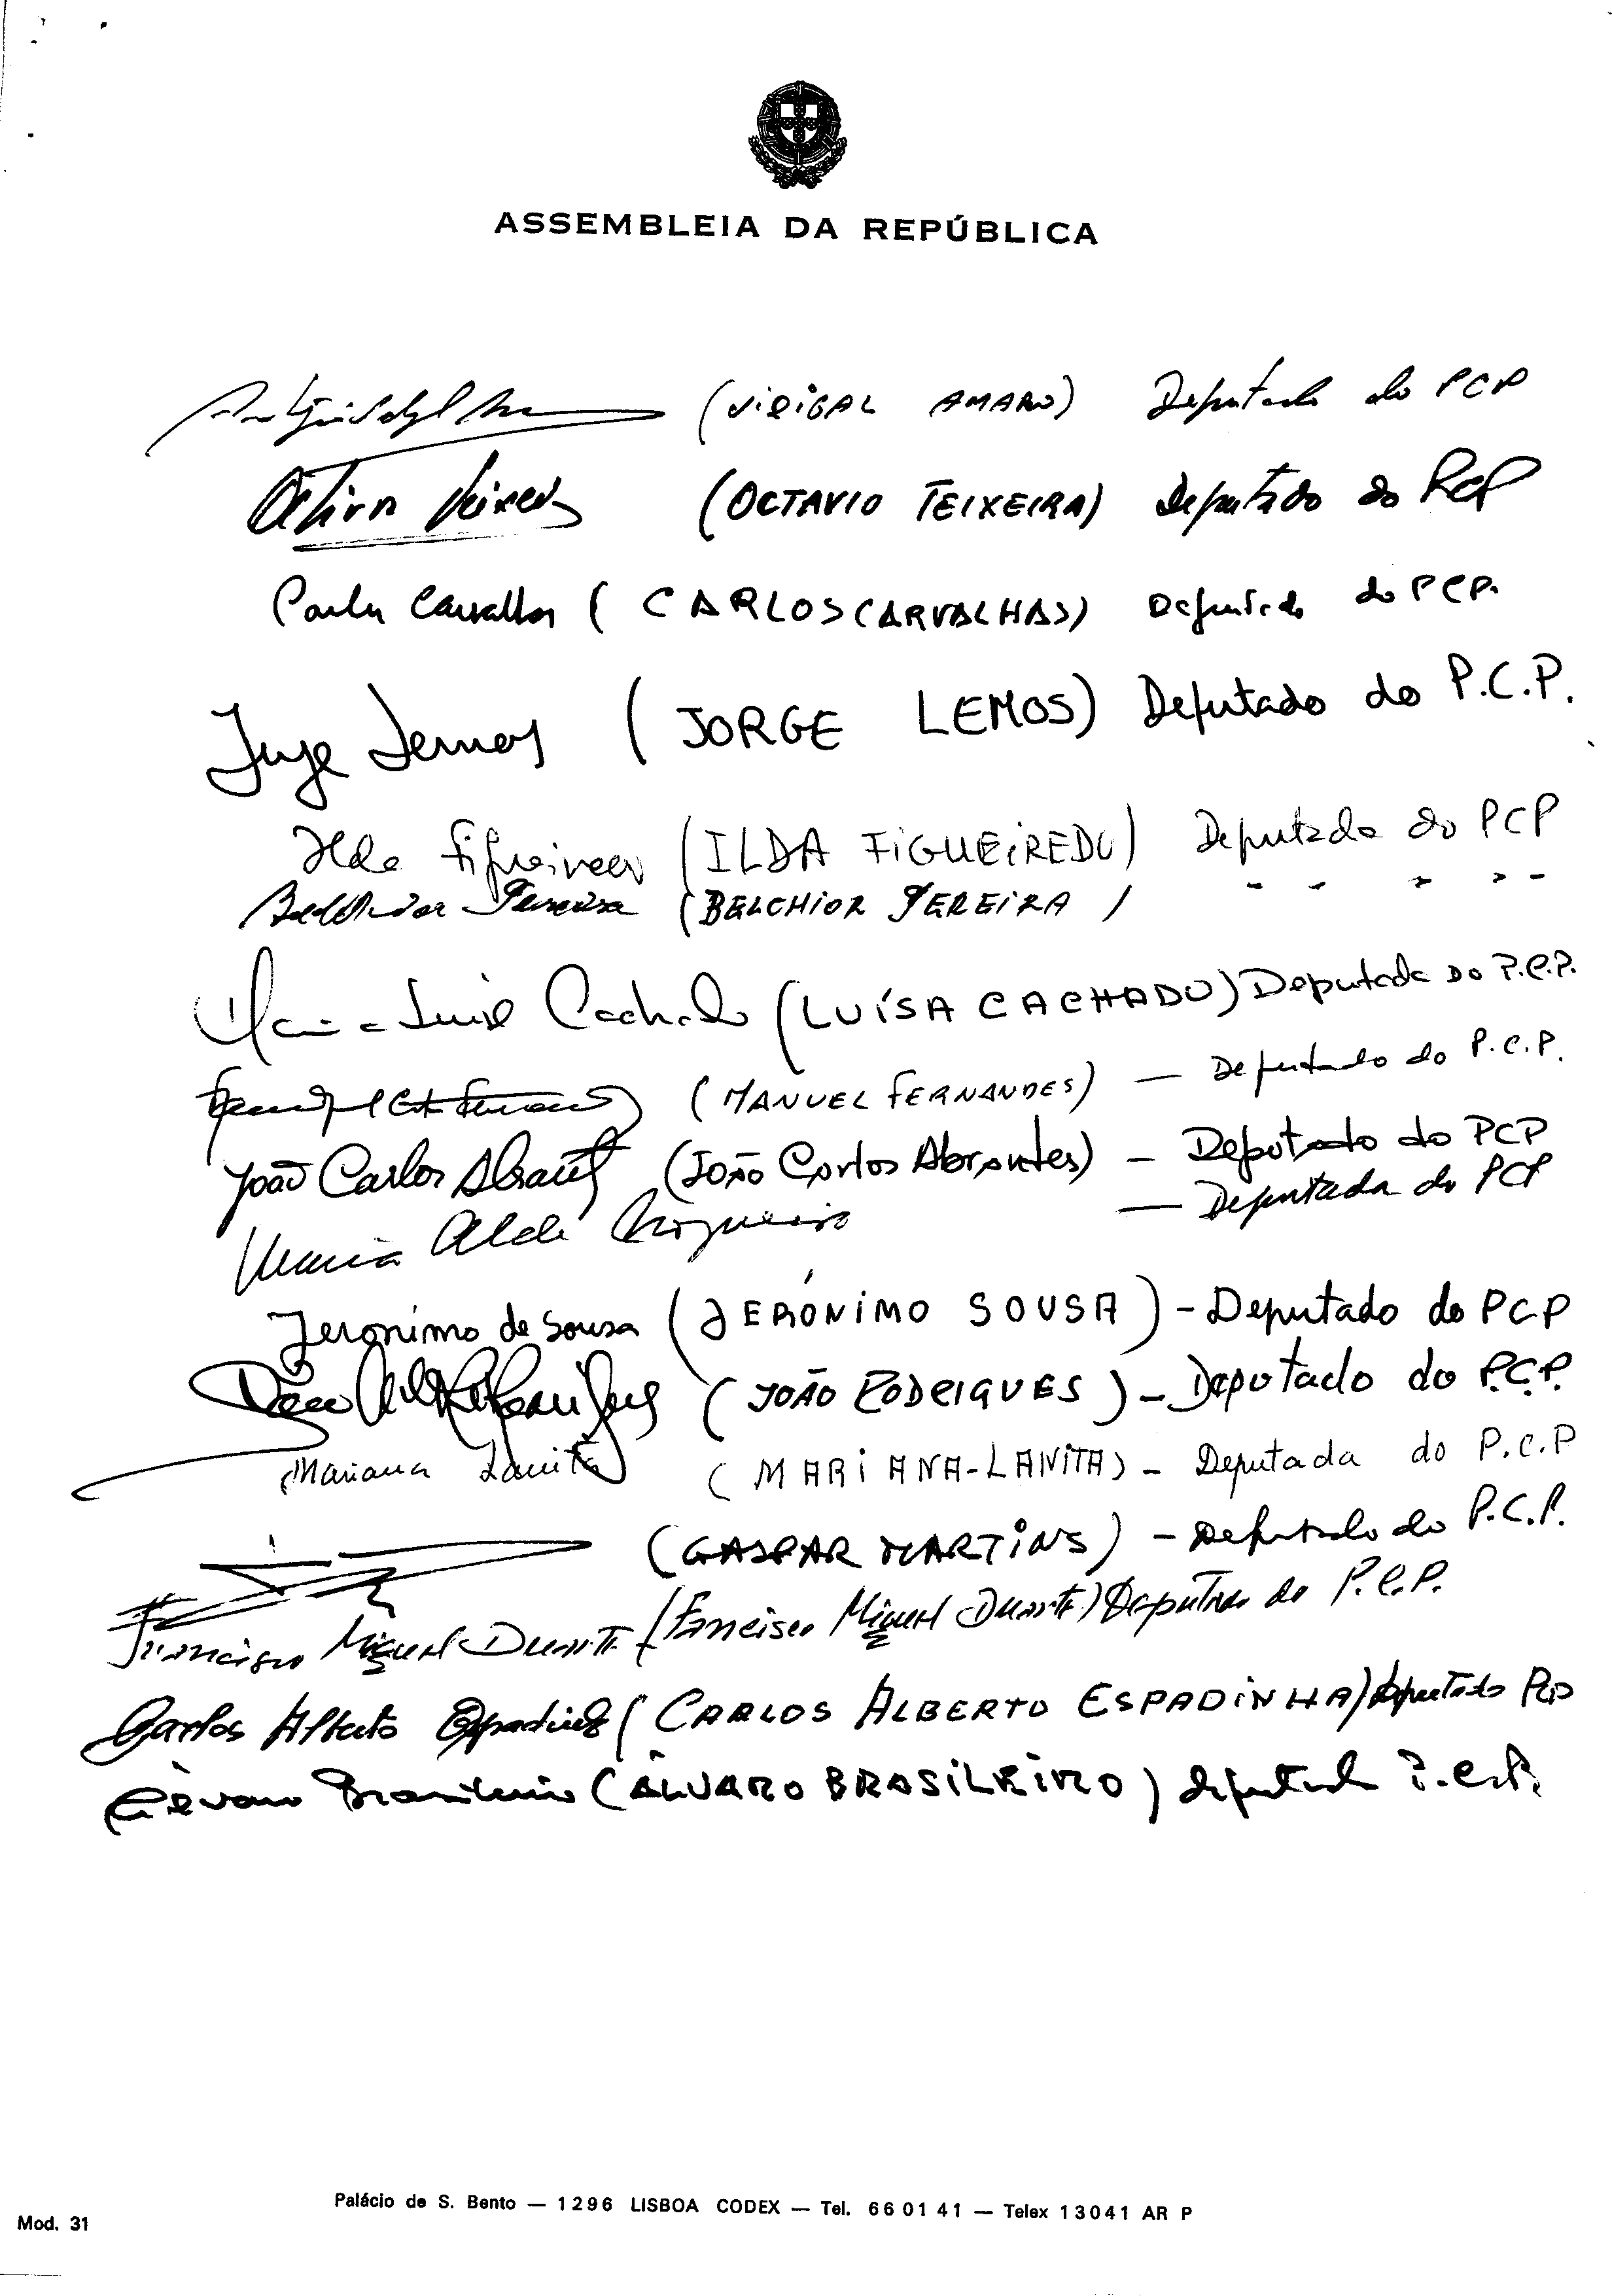 ASSEMBLEIA DA REPÚBLICA
(VIDIGAL AMARO) Deputado do PCP
Octávio Teixeira (OCTAVIO TEIXEIRA) Deputado do PCP
Carlos Carvalhas (CARLOS CARVALHAS) Deputado do PCP.
Jorge Lemos (JORGE LEMOS) Deputado do P.C.P.
Ilda Figueiredo (ILDA FIGUEIREDO) Deputada do PCP
Belchior Pereira (BELCHIOR PEREIRA /
Maria Luísa Cachado (LUÍSA CACHADO) Deputada DO P.C.P.
(MANUEL FERNANDES) — Deputado do P.C.P.
João Carlos Abrantes (João Carlos Abrantes) — Deputado do PCP
Maria Alda Nogueira — Deputada do PCP
Jerónimo de Sousa (JERÓNIMO SOUSA) - Deputado do PCP
(JOÃO RODRIGUES) - Deputado do P.C.P.
Mariana Lanita (MARIANA-LANITA) - Deputada do P.C.P
(GASPAR MARTINS) - Deputado do P.C.P.
Francisco Miguel Duarte (Francisco Miguel Duarte) Deputado do P.C.P.
Carlos Alberto Espadinha (CARLOS ALBERTO ESPADINHA) deputado PCP
Álvaro Brasileiro (ÁLVARO BRASILEIRO) deputado P.C.P.
Palácio de S. Bento — 1296 LISBOA CODEX — Tel. 66 01 41 — Telex 13041 AR P
Mod. 31